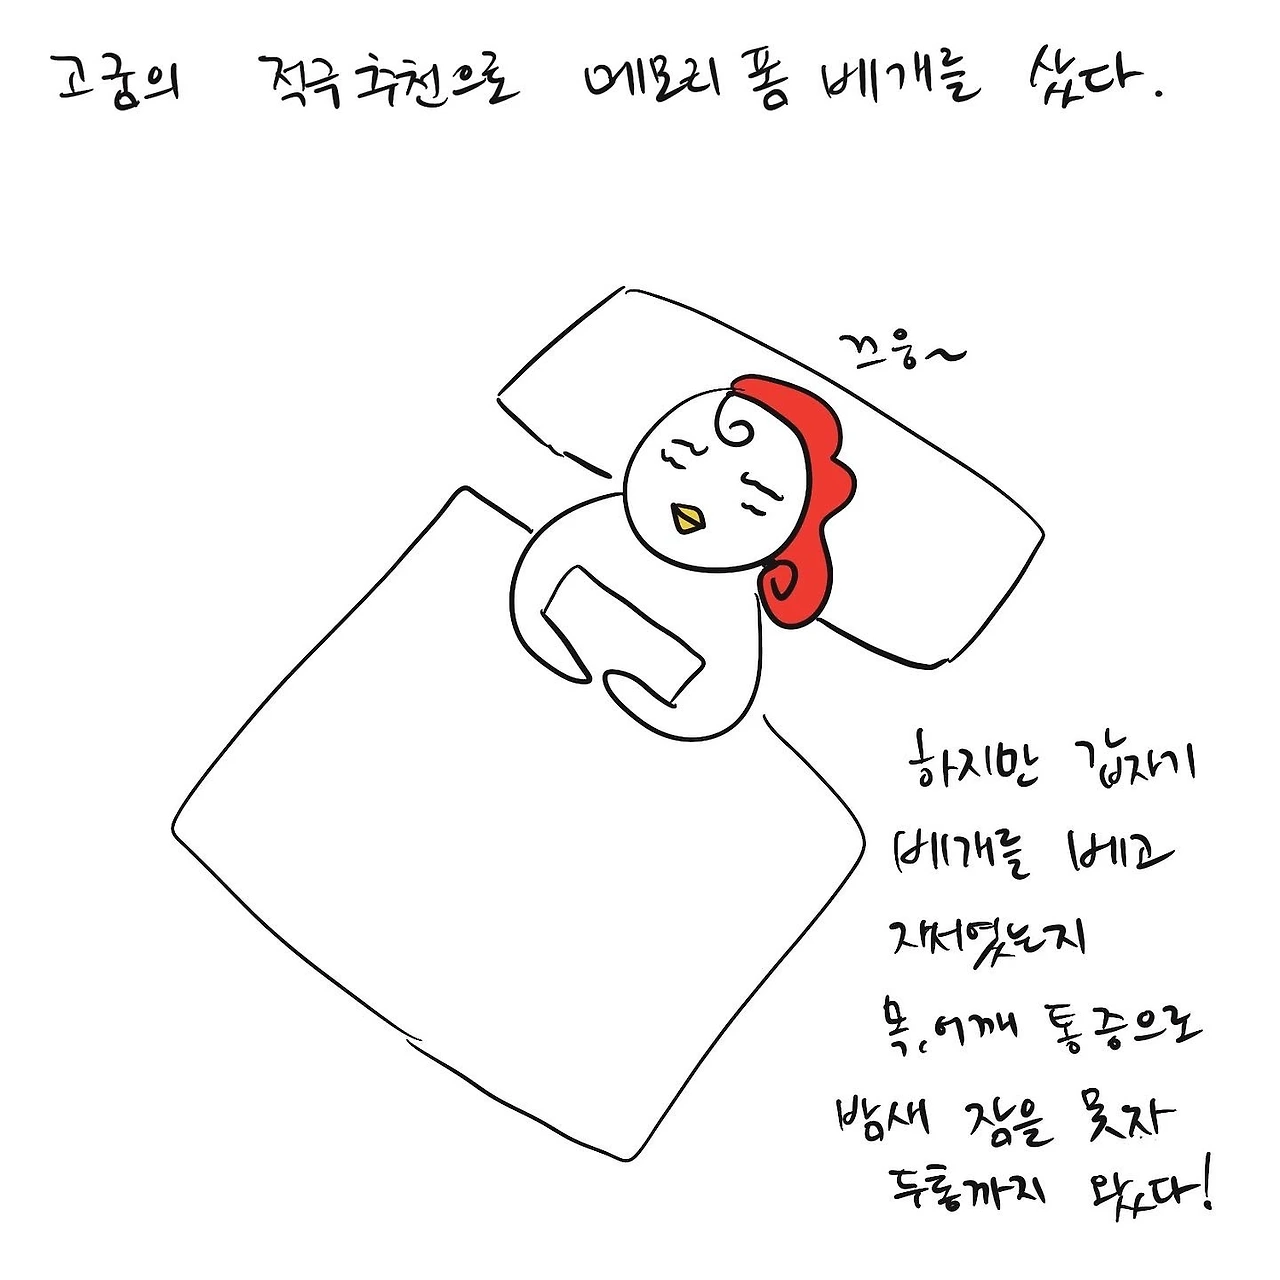 고궁의 적극추천으로 메모리폼 베개를 샀다.
끄웅~
하지만 갑자기
베개를 베고
자서였는지
목,어깨 통증으로
밤새 잠을 못자
두통까지 왔다!